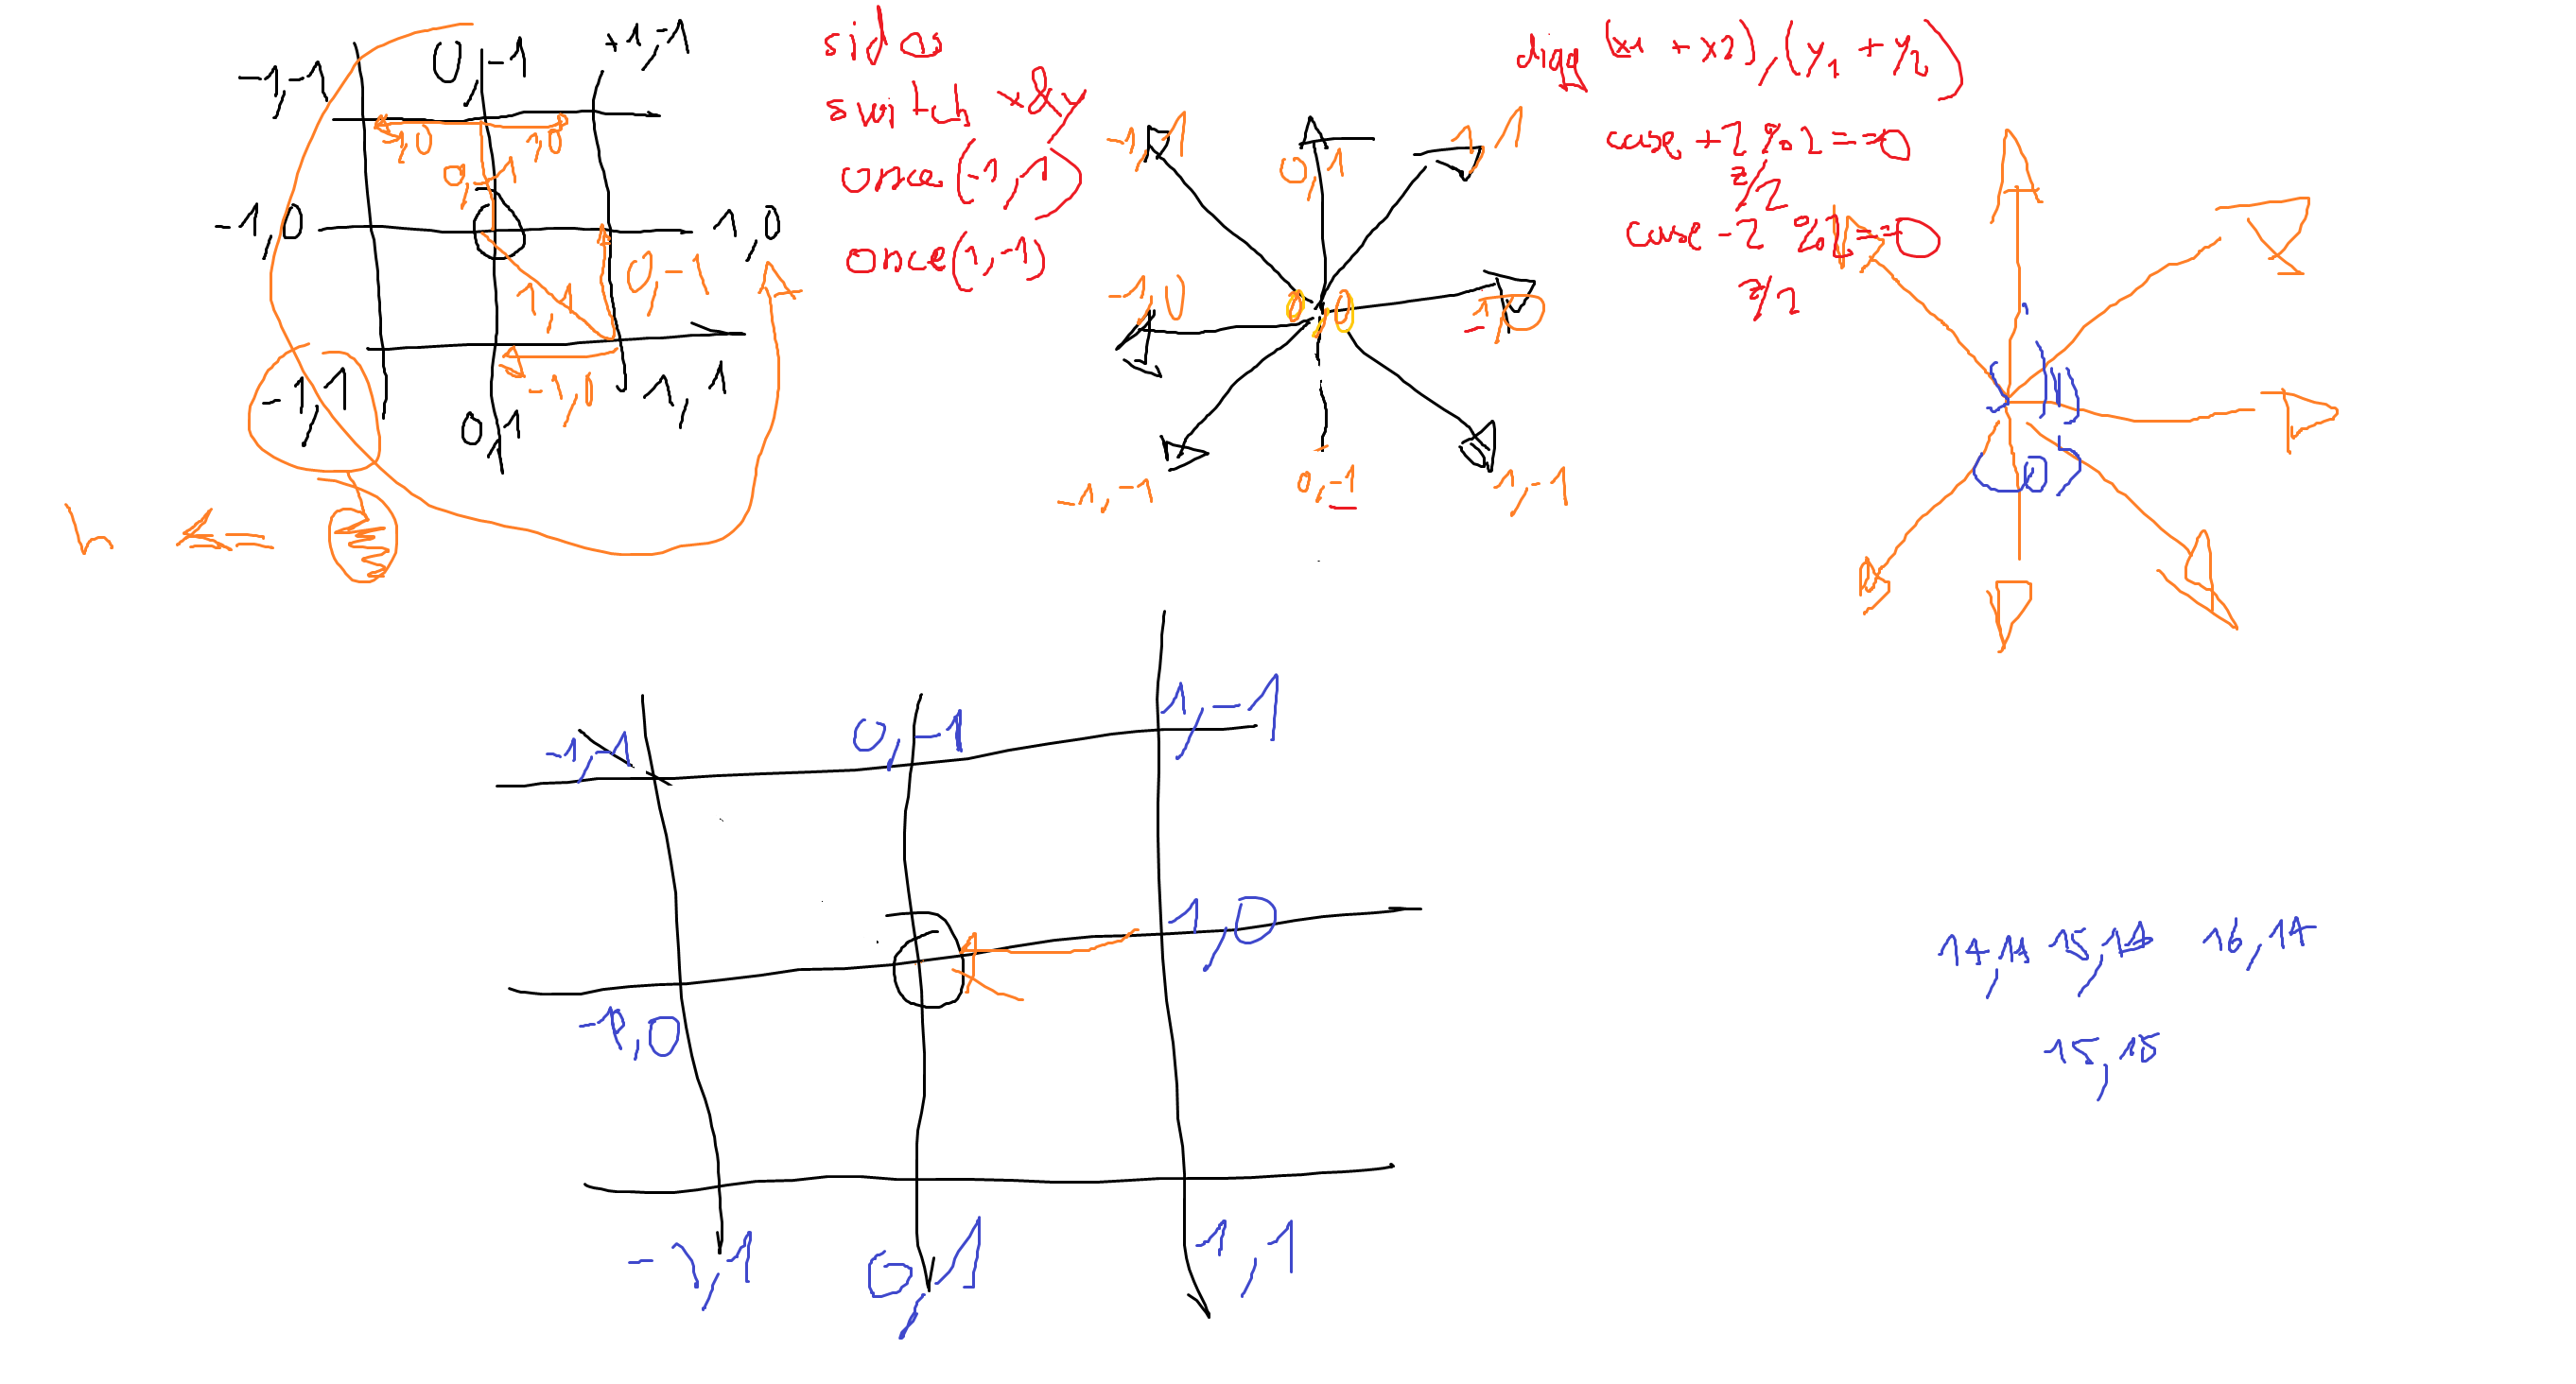 -1,-1
0,-1
+1,-1
-1,0
1,0
0,-1
-1,0
1,0
1,1
0,-1
-1,0
-1,1
0,1
1,1
h <=
sidos
switch x&y
once(-1,1)
once(1,-1)
-1,1
0,1
1,1
-1,0
0,0
1,0
-1,-1
0,-1
1,-1
(x1 + x2),(y1 + y2)
case +2%2==0
z/2
case -2%2==0
z/2
-1,-1
0,-1
1,-1
-1,0
1,0
-1,1
0,1
1,1
14,14 15,14 16,14
15,15